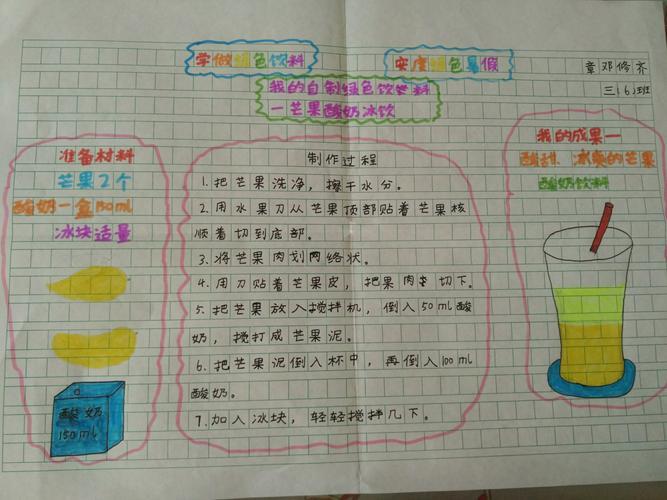 学做绿色饮料
安度绿色暑假
章邓修齐
三(6)班
我的自制绿色饮料
—芒果酸奶冰饮
准备材料
芒果2个
酸奶一盒150ml
冰块适量
酸奶
150ml
制作过程
1.把芒果洗净，擦干水分。
2.用水果刀从芒果顶部贴着芒果核
顺着切到底部。
3.将芒果肉划网络状。
4.用刀贴着芒果皮，把果肉切下。
5.把芒果放入搅拌机，倒入50ml酸
奶，搅打成芒果泥。
6.把芒果泥倒入杯中，再倒入100ml
酸奶。
7.加入冰块，轻轻搅拌几下。
我的成果—
酸甜、冰爽的芒果
酸奶饮料